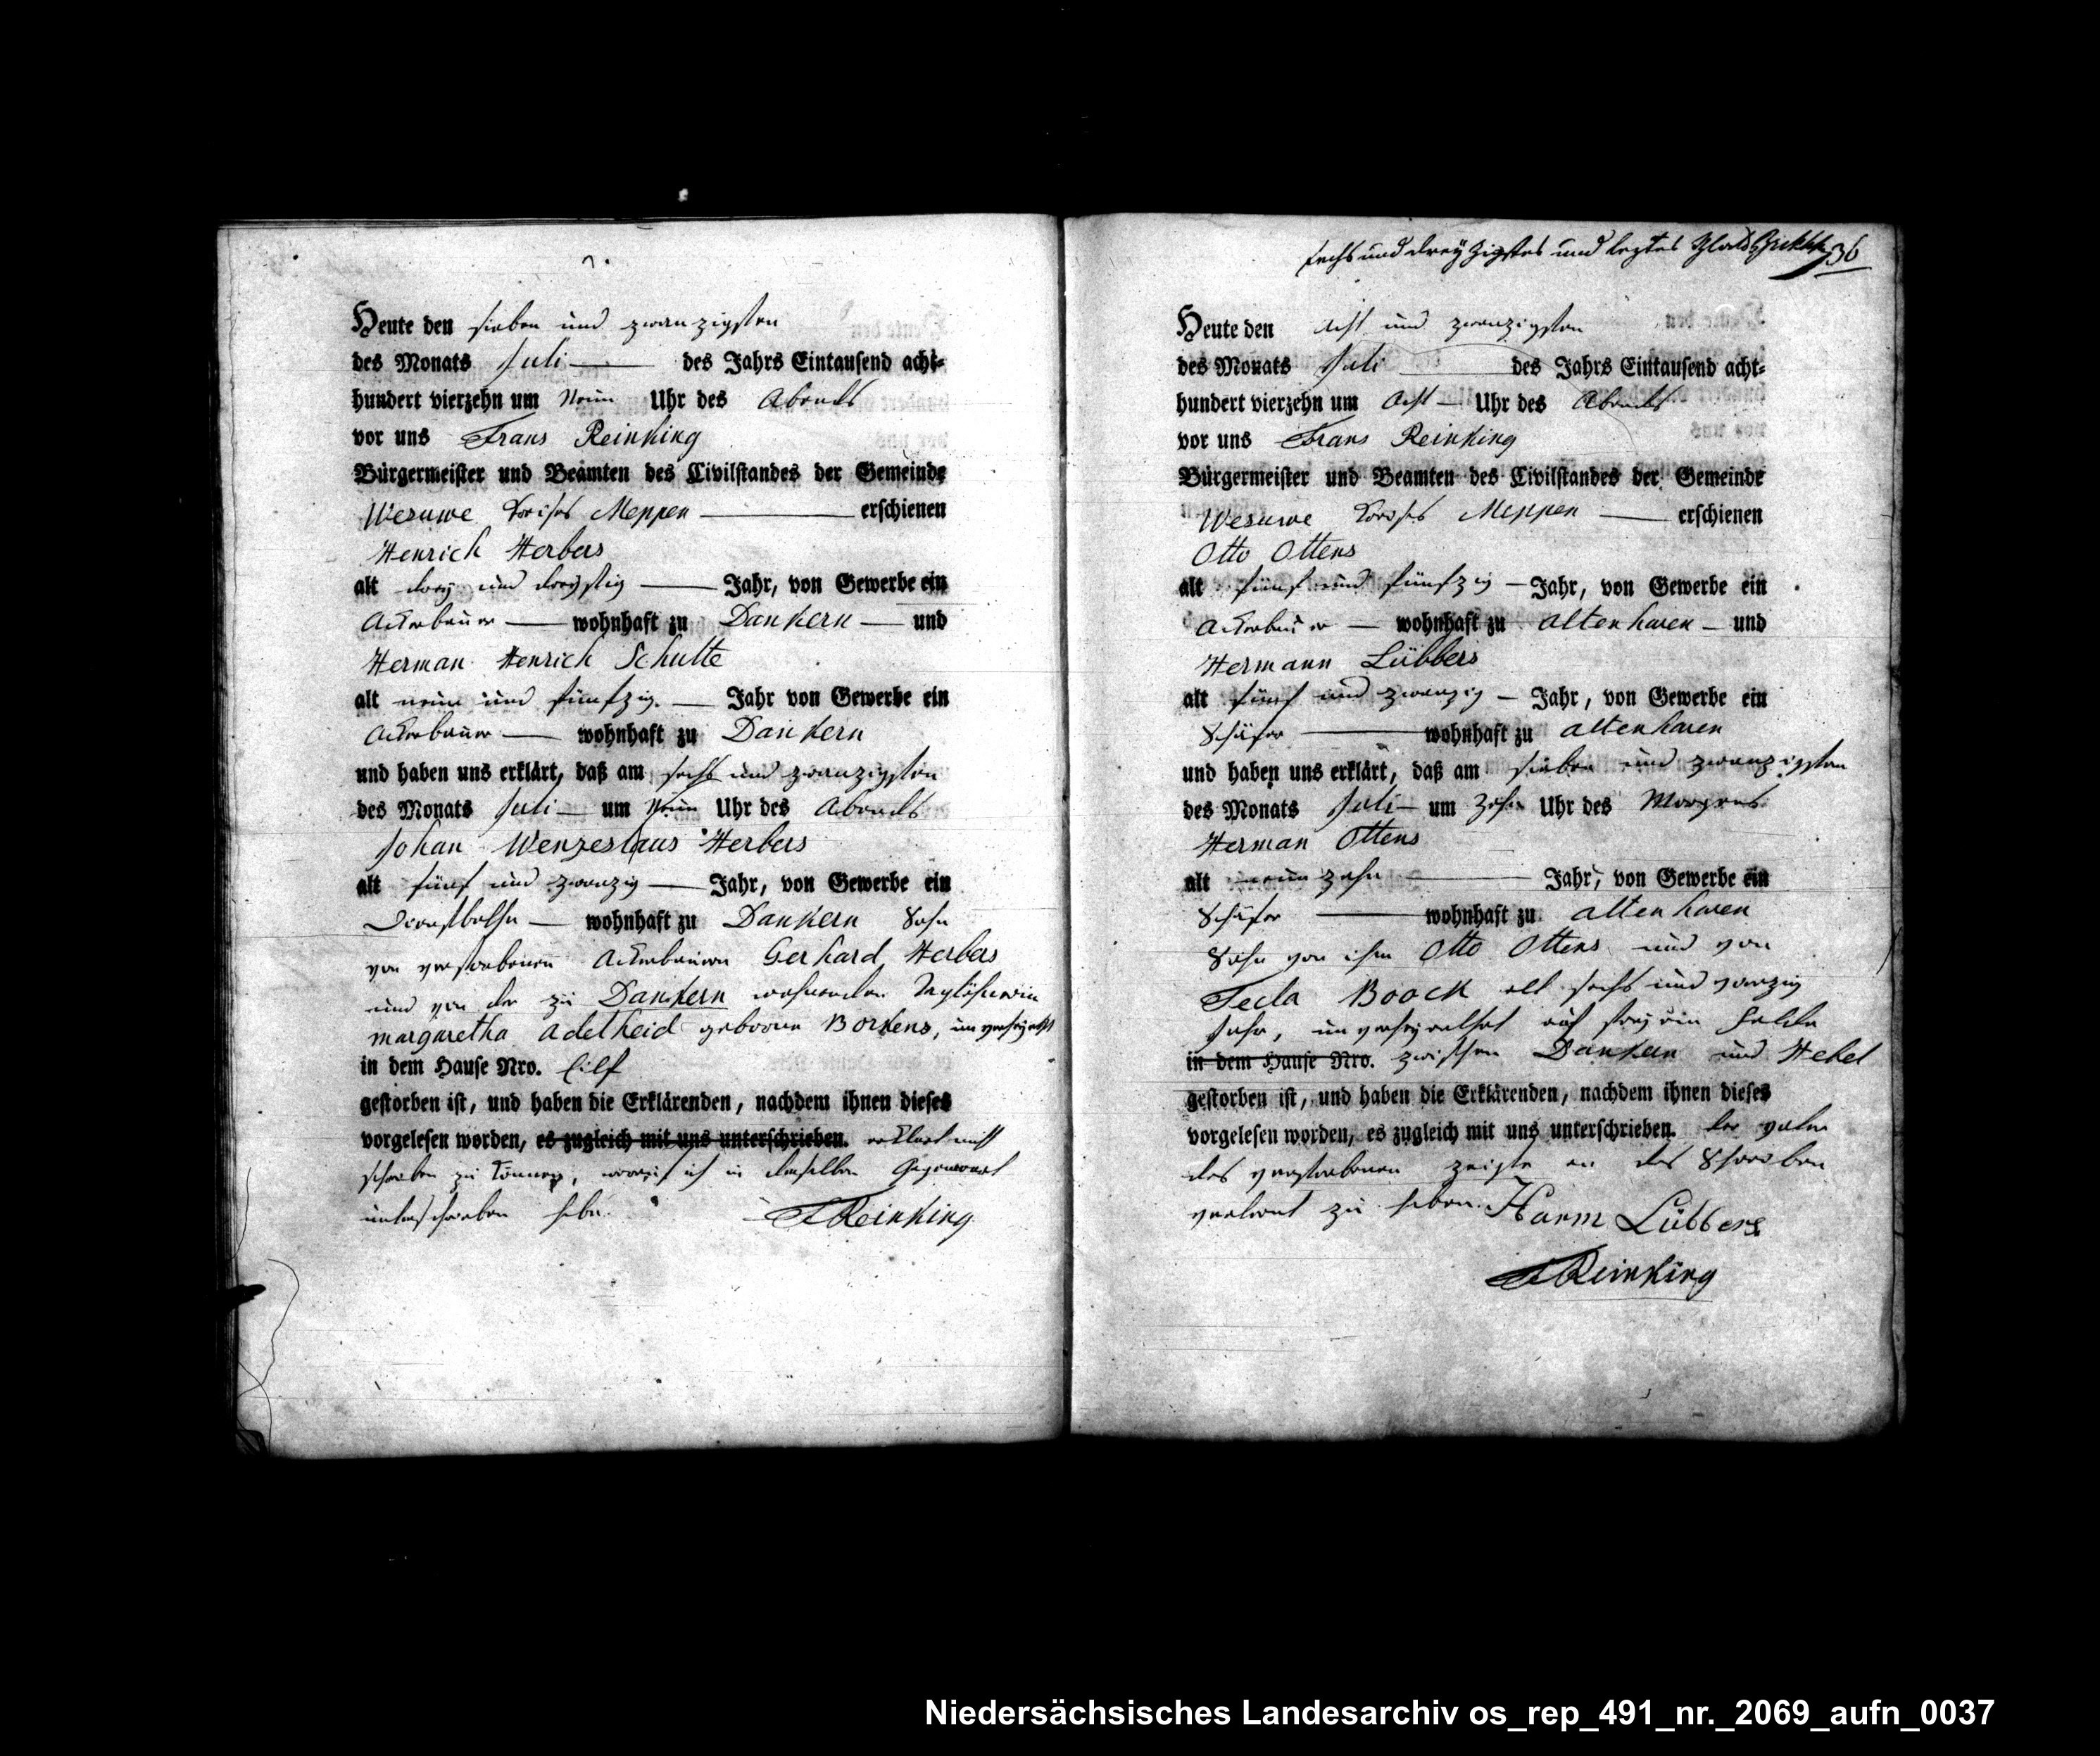 Heute den sieben und zwanzigsten
des Monats Juli des Jahrs Eintausend acht-
hundert vierzehn um Neun Uhr des Abends
vor uns Frans Reinking
Bürgermeister und Beamten des Civilstandes der Gemeinde
Wesuwe Kreises Meppen erschienen
Henrich Herbers
alt drey und dreyssig Jahr, von Gewerbe ein
Ackerbauer wohnhaft zu Dankern und
Herman Henrich Schulte
alt neun und fünfzig. Jahr von Gewerbe ein
Ackerbauer wohnhaft zu Dankern
und haben uns erklärt, daß am sechs und zwanzigsten
des Monats Juli um Neun Uhr des Abends
Johan Wenzeslaus Herbers
alt fünf und zwanzig Jahr, von Gewerbe ein
Dienstbothe wohnhaft zu Dankern Sohn
von verstorbenen Ackerbauern Gerhard Herbers
und von der zu Dankern wohnenden Taglöhnerin
margaretha adelheid geborene Borkens, unverheyrathet
in dem Hause Nro. Eilf
gestorben ist, und haben die Erklärenden, nachdem ihnen dieses
vorgelesen worden, es zugleich mit uns unterschrieben. erklaert nicht
schreiben zu können, worauf ich in derselben Gegenwart
unterschrieben habe. FReinking
sechs und dreyzigstes und leztes Blatt 36
Heute den Acht und zwanzigsten
des Monats Juli des Jahrs Eintausend acht-
hundert vierzehn um Acht Uhr des Abends
vor uns Frans Reinking
Bürgermeister und Beamten des Civilstandes der Gemeinde
Wesuwe Kreises Meppen erschienen
Otto Ottens
alt fünf und fünfzig Jahr, von Gewerbe ein
Ackerbauer wohnhaft zu altenharen und
Hermann Lübbers
alt fünf und zwanzig Jahr, von Gewerbe ein
Schäfer wohnhaft zu altenharen
und haben uns erklärt, daß am sieben und zwanzigsten
des Monats Juli um Zehn Uhr des Morgens
Herman Ottens
alt neunzehn Jahr, von Gewerbe ein
Schäfer wohnhaft zu altenharen
Sohn von ihm Otto Ottens und von
Tecla Boock alt sechs und
Jahr, unverheyrathet auf freyem Felde
in dem Hause Nro. zwischen Dankern und Hebel
gestorben ist, und haben die Erklärenden, nachdem ihnen dieses
vorgelesen worden, es zugleich mit uns unterschrieben. der vater
des verstorbenen zeigte an das Schreiben
verlernt zu haben. Harm Lübbers
FReinking
Niedersächsisches Landesarchiv os_rep_491_nr._2069_aufn_0037